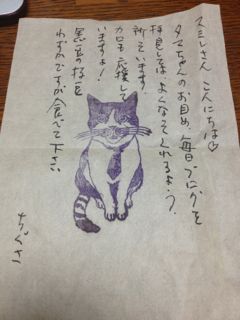 スミレさん こんにちは♡
タマちゃんのお目め、毎日ブログを
拝見しては、よくなってくれるよう、
祈っています。
カロも応援して
いますよ!
わずかですが食べて下さい
ちぐさ